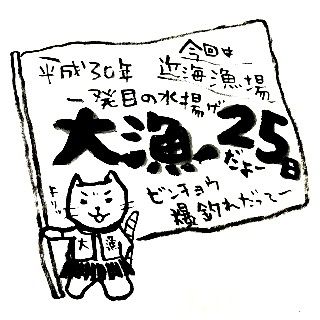 今回は
平成30年 近海漁場
一発目の水揚げ
大漁 25日
だよー
ビンチョウ
爆釣れだってー
キリッ
大漁